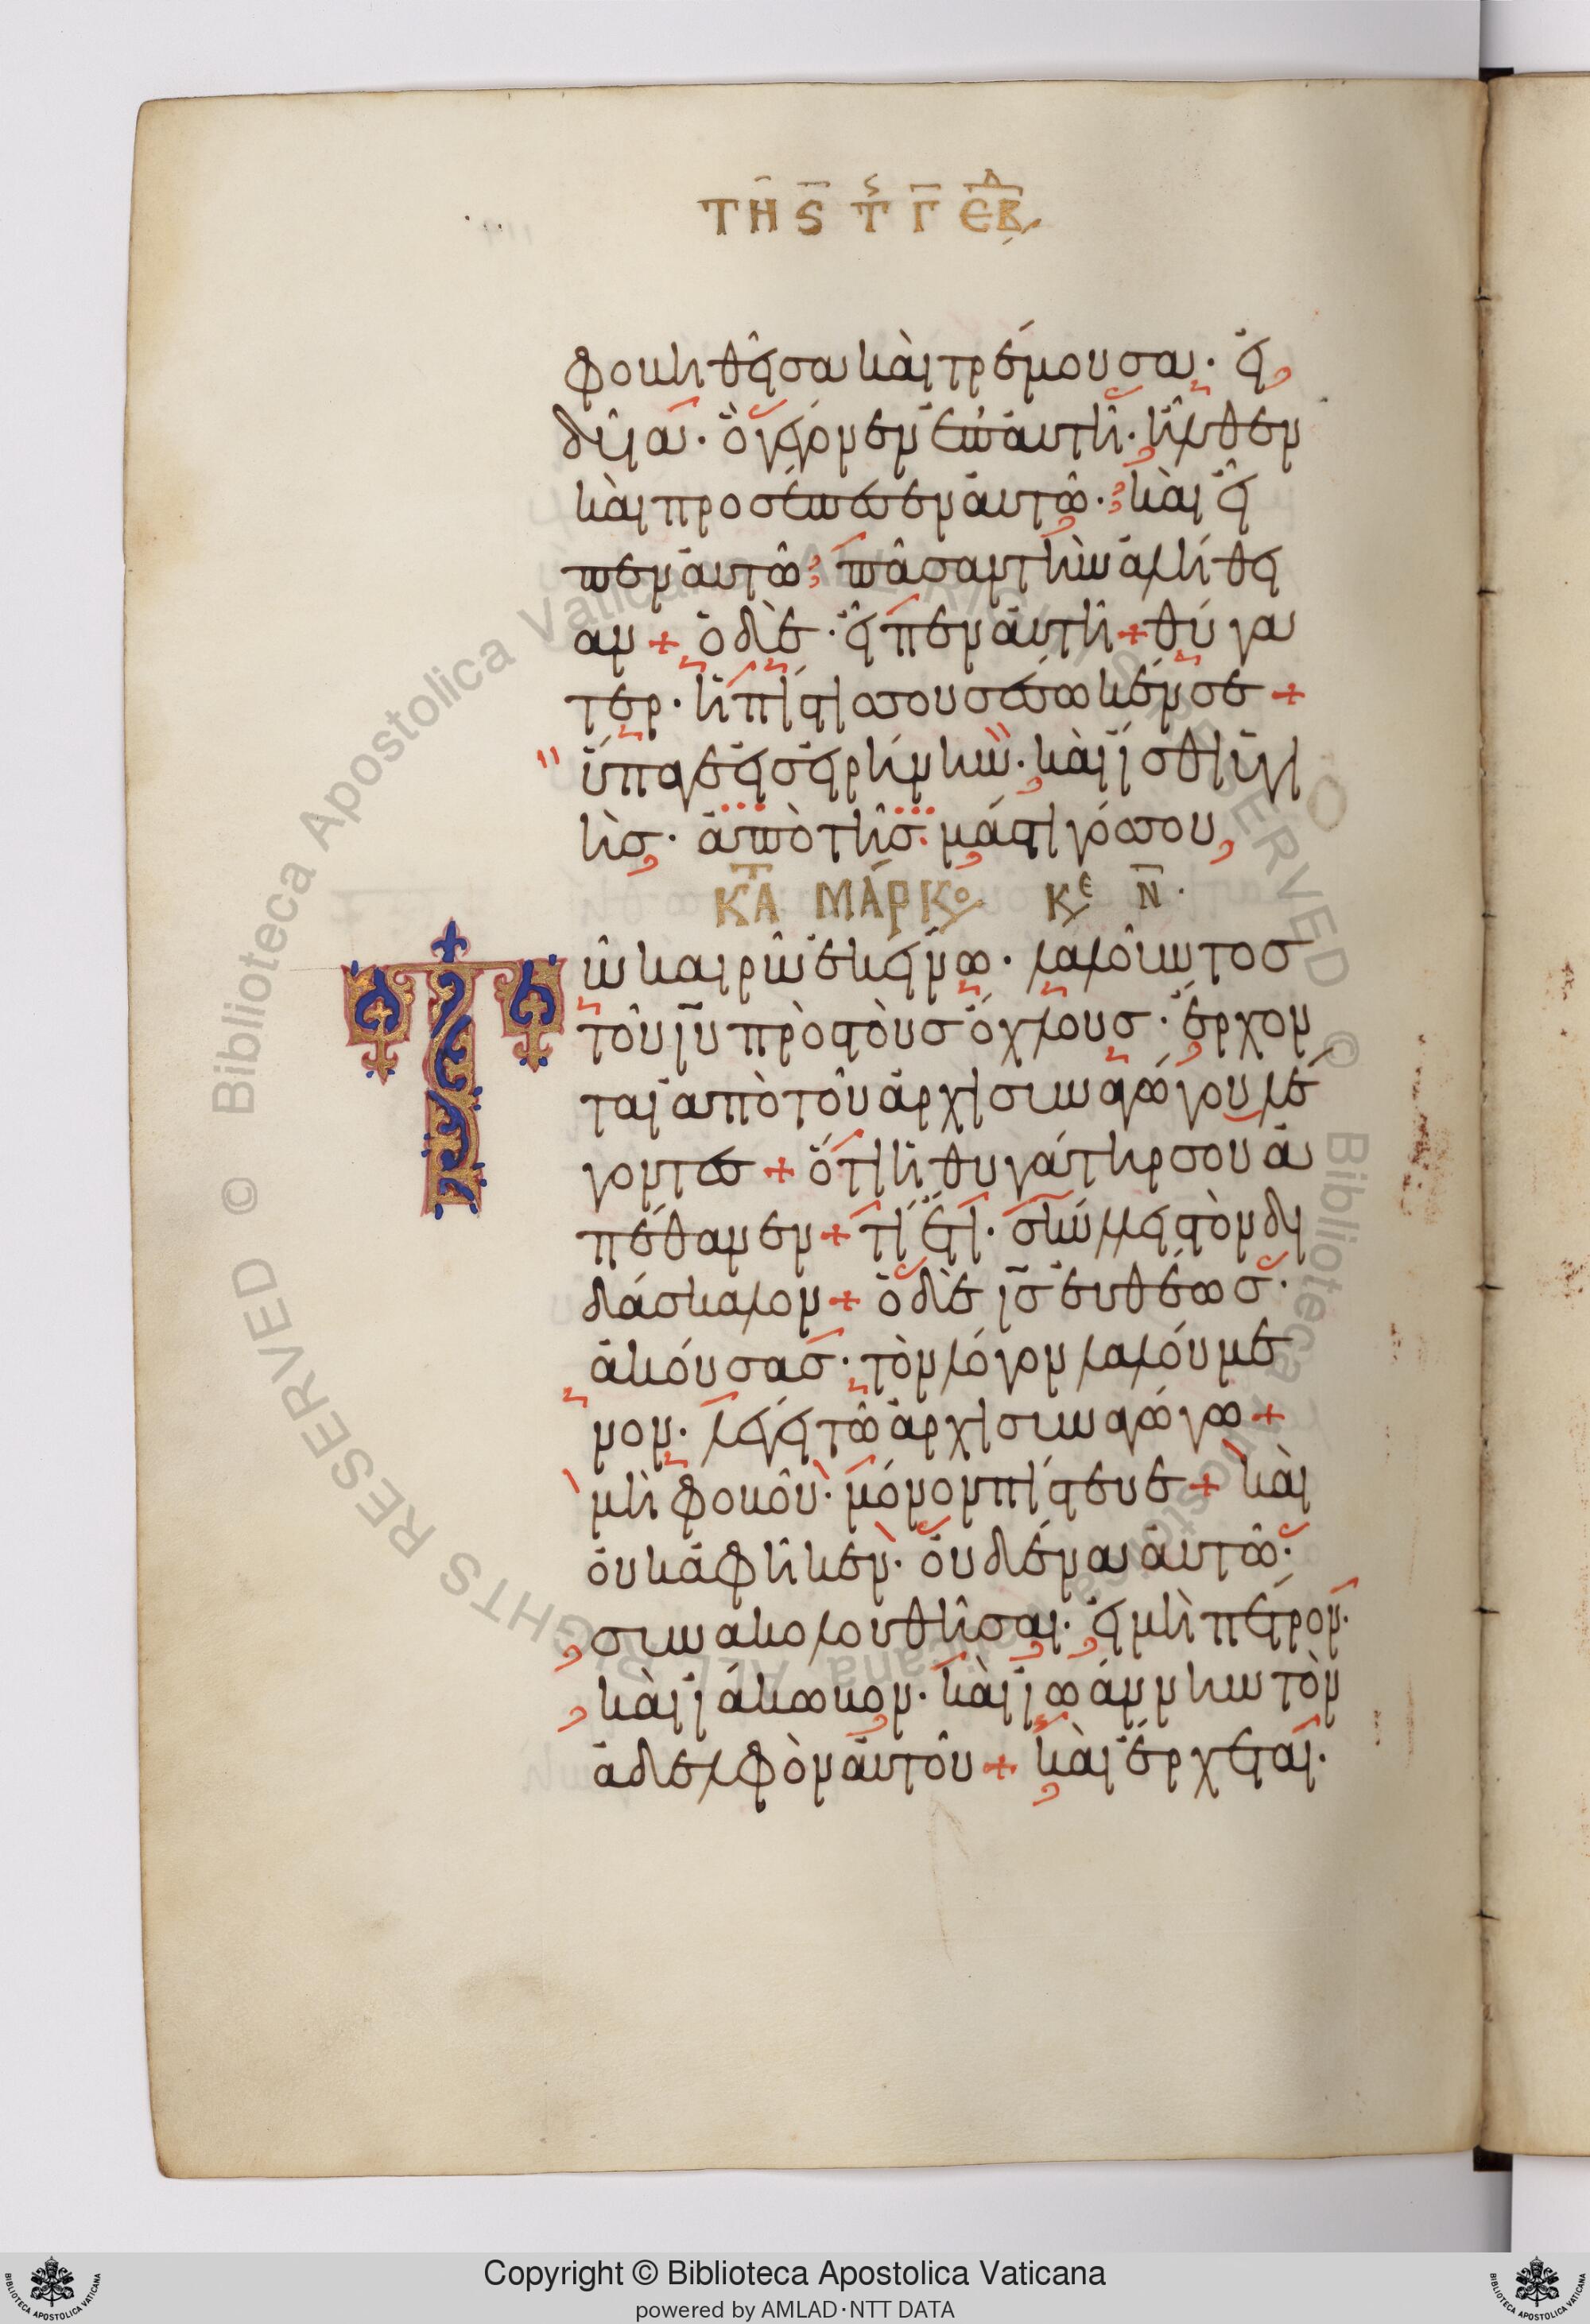 ΤΗ S Τ Γ ΕΒΔ
φοβηθεῖσα καὶ τρέμουσα· εἰ
δυῖα· ὃ γέγονεν ἐπ' αὐτῆ· ἦλθεν
καὶ προσέπεσεν αὐτῶ· καὶ εἶ
πεν αὐτῶ πᾶσαν τὴν ἀλήθει
αν + ὁ δὲ· εἶπεν αὐτῆ + θύγα
τερ· ἡ πίστις σου σέσωκέν σε +
ὕπαγε εἰς εἰρήνην· καὶ ἴσθι ὑγι
ὴς· ἀπὸ τῆς μάστιγός σου
ΚΑΤ ΜΑΡΚΟ ΚΕ Ν·
Τῶ καιρῶ ἐκείνω· λαλοῦντος
τοῦ ιυ πρὸς τοὺς ὄχλους· ἔρχον
ται ἀπὸ τοῦ ἀρχισυναγώγου λέ
γοντες + ὅτι ἡ θυγάτηρ σου ἀ
πέθανεν + τί ἔτι· σκύλλεις τὸν δι
δάσκαλον + ὁ δὲ ις εὐθέως·
ἀκούσας· τὸν λόγον λαλούμε
νον· λέγει τῶ ἀρχισυναγώγω +
μὴ φοβοῦ· μόνον πίστευε + καὶ
οὐκ ἀφῆκεν· οὐδένα αὐτῶ·
συνακολουθῆσαι· εἰ μὴ πέτρον·
καὶ ἰάκωβον· καὶ ἰωάννην τὸν
ἀδελφὸν αὐτοῦ + καὶ ἔρχεται·
Copyright © Biblioteca Apostolica Vaticana
powered by AMLAD·NTT DATA